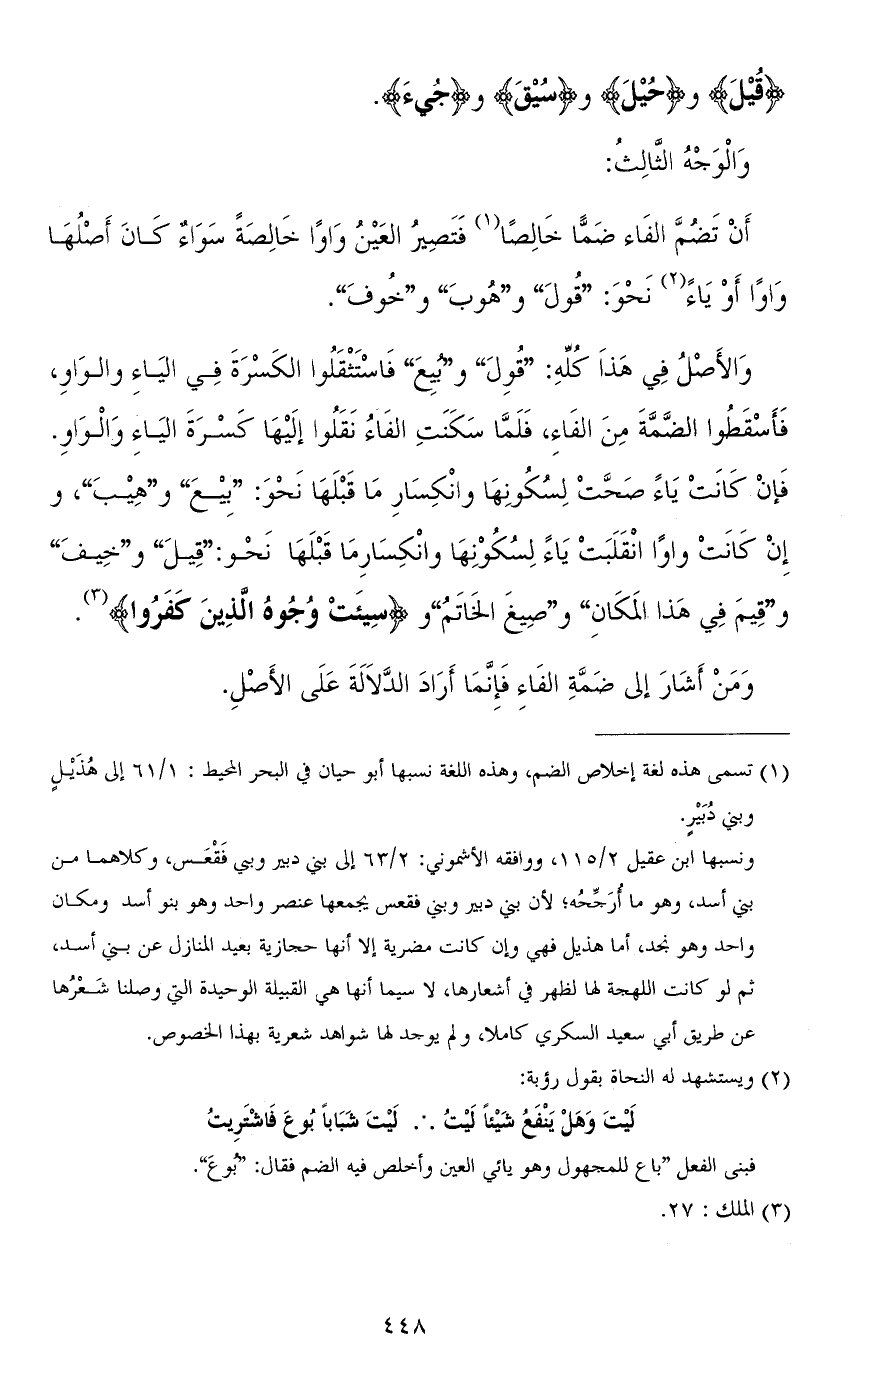 ﴿قُيْلَ﴾ و﴿حُيْلَ﴾ و﴿سُيْقَ﴾ و﴿جُيءَ﴾.
وَالْوَجْهُ الثَّالِثُ:
أَنْ تَضُمَّ الفَاء ضَمًّا خَالِصًا(١) فَتَصِيرُ العَيْنُ وَاوًا خَالِصَةً سَوَاءٌ كَـانَ أَصْلُهَـا
وَاوًا أَوْ يَاءً(٢) نَحْوَ: ”قُولَ“ و”هُوبَ“ و”خُوفَ“.
وَالأَصْلُ فِي هَذَا كُلِّهِ: ”قُوِلَ“ و”بُيِعَ“ فَاسْتَثْقَلُوا الكَسْرَةَ فِـي اليَـاءِ والـوَاوِ،
فَأَسْقَطُوا الضَّمَّةَ مِنَ الفَاءِ، فَلَمَّا سَكَنَتِ الفَاءُ نَقَلُوا إِلَيْهَا كَسْـرَةَ اليَـاءِ وَالْـوَاوِ.
فَإِنْ كَانَتْ يَاءً صَحَّتْ لِسُكُونِهَا وانْكِسَارِ مَا قَبْلَهَا نَحْوَ: ”بِيْـعَ“ و”هِيْـبَ“، و
إِنْ كَانَتْ واوًا انْقَلَبَتْ يَاءً لِسُكُوْنِهَا وانْكِسَارِمَا قَبْلَهَا نَحْـو:”قِيـلَ“ و”خِيـفَ“
و”قِيمَ فِي هَذا المَكَانِ“ و”صِيغَ الخَاتَمُ“و ﴿سِيئَتْ وُجُوهُ الَّذِينَ كَفَرُوا﴾(٣).
وَمَنْ أَشَارَ إلى ضَمَّةِ الفَاءِ فَإِنَّمَا أَرَادَ الدَّلاَلَةَ عَلَى الأَصْلِ.
(١) تسمى هذه لغة إخلاص الضم، وهذه اللغة نسبها أبو حيان في البحر المحيط : ٦١/١ إلى هُذَيْـلٍ
وبني دُبَيْرٍ.
ونسبها ابن عقيل ١١٥/٢، ووافقه الأشموني: ٦٣/٢ إلى بني دبير وبي فَقْعَـس، وكلاهمـا مـن
بني أسد، وهو ما أُرَجِّحُه؛ لأن بني دبير وبني فقعس يجمعها عنصر واحد وهو بنو أسد ومكـان
واحد وهو نجد، أما هذيل فهي وإن كانت مضرية إلا أنها حجازية بعيد المنازل عن بـني أسـد،
ثم لو كانت اللهجة لها لظهر في أشعارها، لا سيما أنها هي القبيلة الوحيدة التي وصلنا شَـعْرُها
عن طريق أبي سعيد السكري كاملا، و لم يوجد لها شواهد شعرية بهذا الخصوص.
(٢) ويستشهد له النحاة بقول رؤبة:
لَيْتَ وَهَلْ يَنْفَعُ شَيْئاً لَيْتُ ∴ لَيْتَ شَبَاباً بُوعَ فَاشْتَرِيتُ
فبنى الفعل ”باع للمجهول وهو يائي العين وأخلص فيه الضم فقال: ”بُوعَ“.
(٣) الملك : ٢٧.
٤٤٨